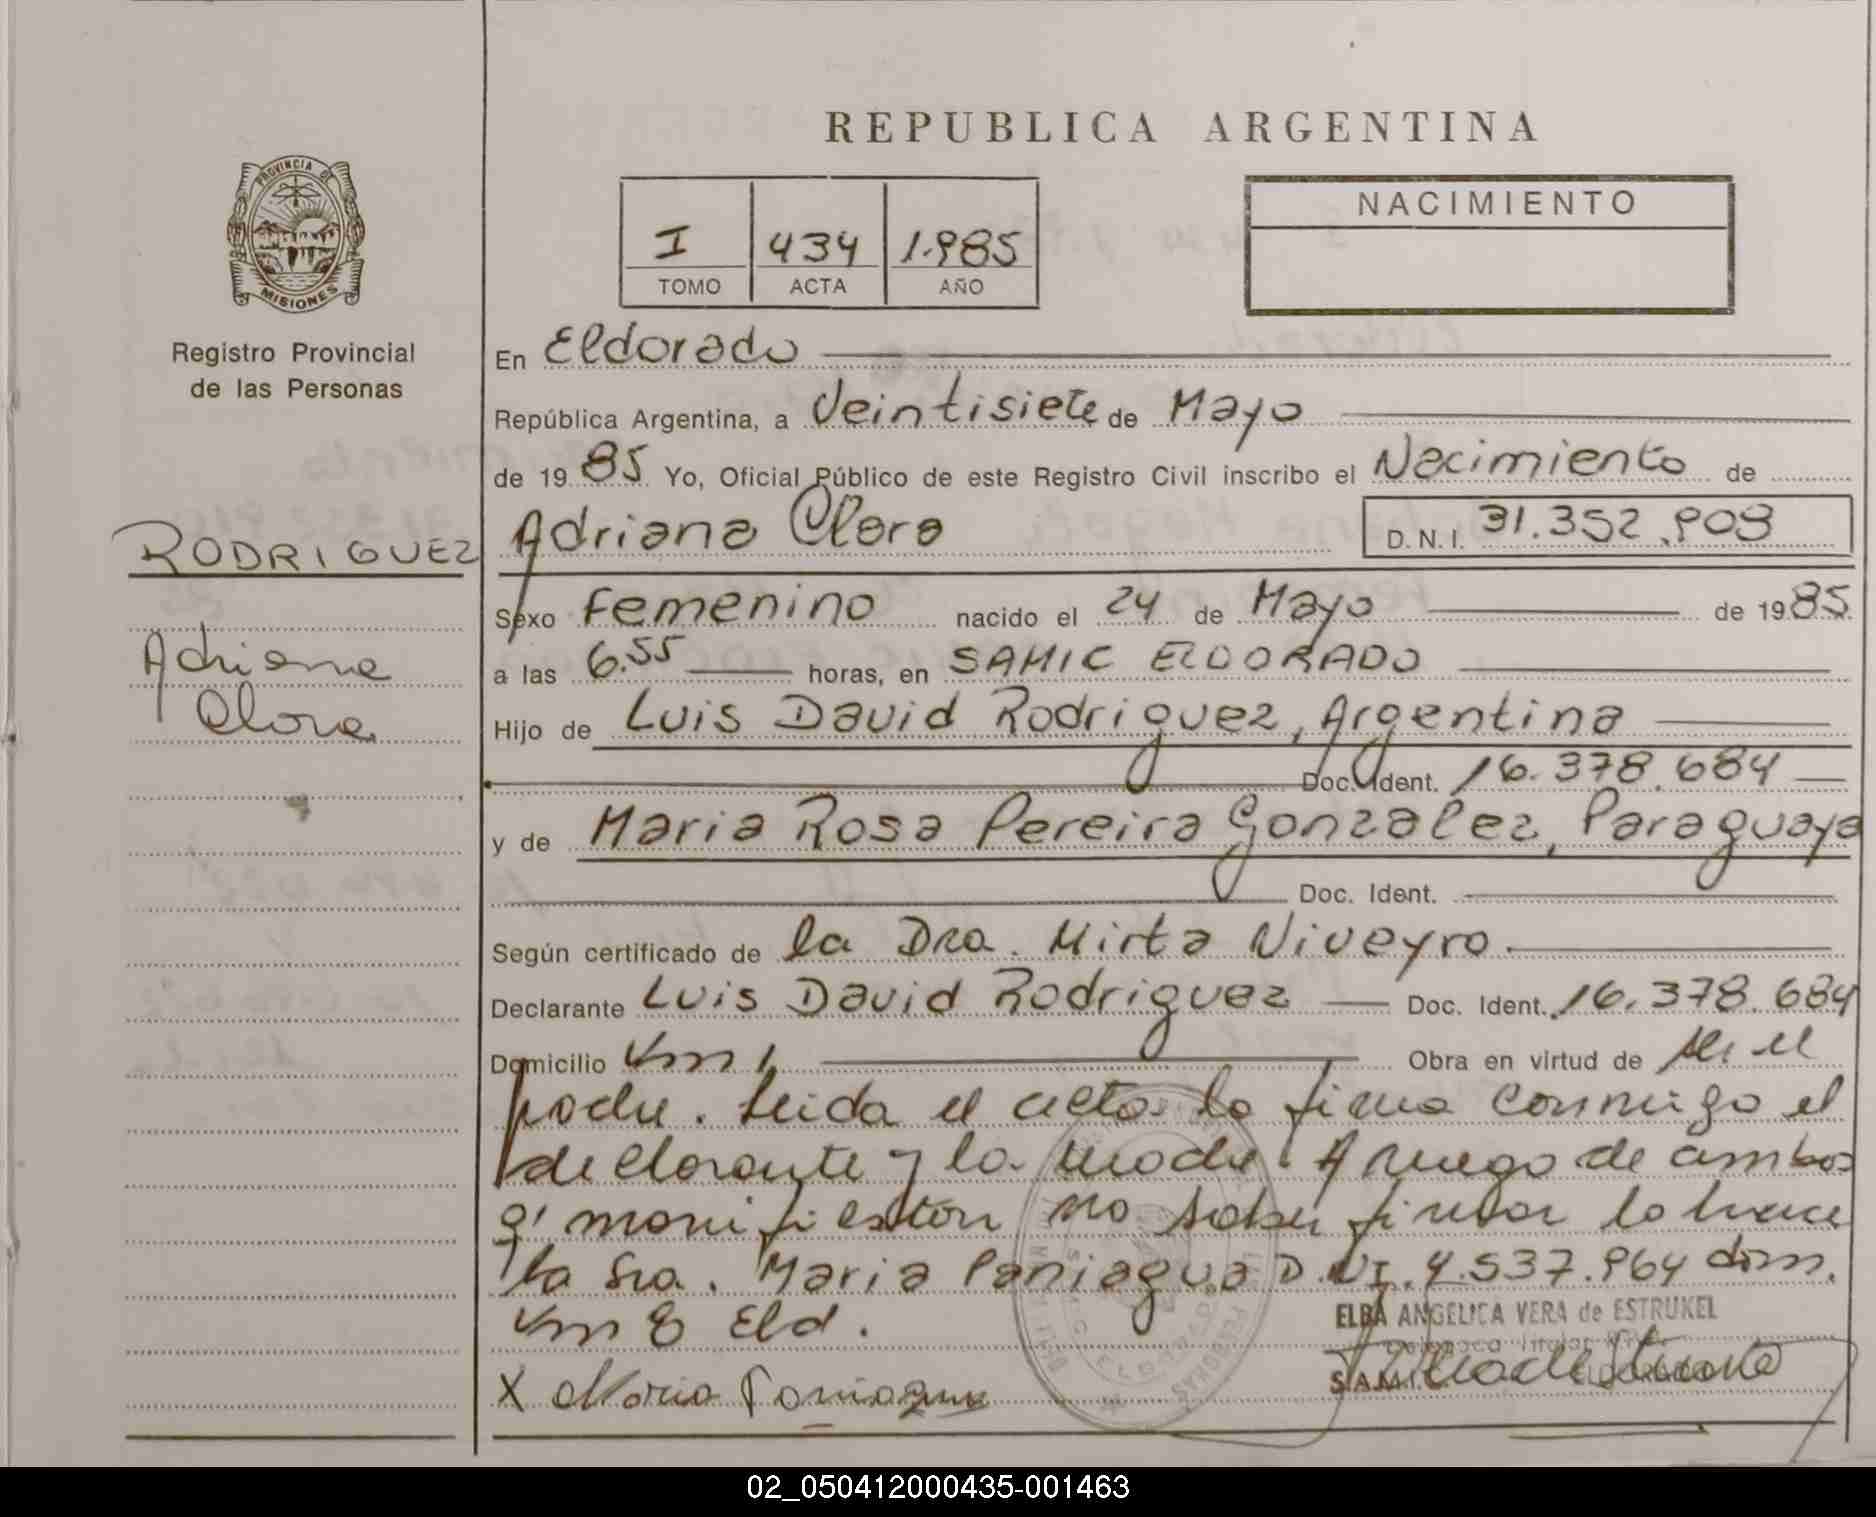 REPUBLICA ARGENTINA
PROVINCIA DE
MISIONES
Registro Provincial
de las Personas
I 434 1.985
TOMO ACTA AÑO
NACIMIENTO
En Eldorado
República Argentina, a Veintisiete de Mayo
de 19 85 Yo, Oficial Público de este Registro Civil inscribo el Nacimiento de
RODRIGUEZ
Adriana Clara D.N.I. 31.352.909
Sexo Femenino nacido el 24 de Mayo de 19 85.
Adriana
Clara
a las 6.55 horas, en SAMIC ELDORADO
Hijo de Luis David Rodriguez, Argentina
Doc. Ident. 16.378.684
y de Maria Rosa Pereira Gonzalez, Paraguaya
Doc. Ident.
Según certificado de la Dra. Mirta Niveyro.
Declarante Luis David Rodriguez Doc. Ident. 16.378.684
Domicilio Km 1, Obra en virtud de ser el
padre. Leida el acta la firma conmigo el
declarante y la madre. A ruego de ambos
q' manifiestan no saber firmar lo hace
la Sra. Maria Paniagua D.NI. 4.537.964 dom.
Km 8 Eld.
ELBA ANGELICA VERA de ESTRUKEL
X Maria Paniagua
02_050412000435-001463